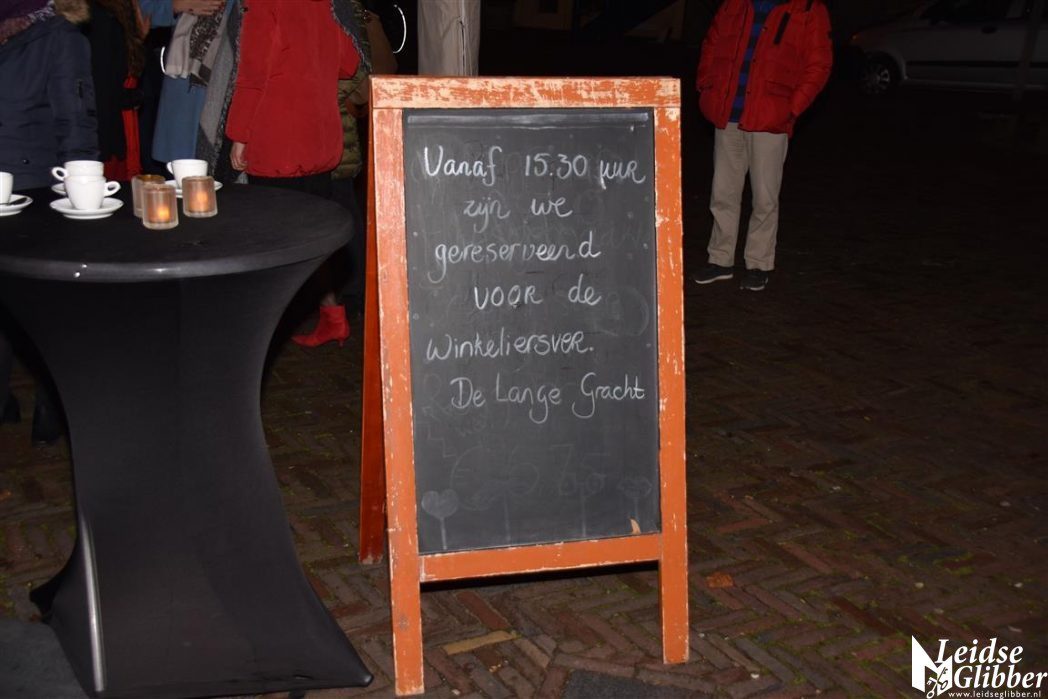 Vanaf 15.30 uur
zijn we
gereserveerd
voor de
Winkeliersver.
De Lange Gracht
Leidse
Glibber
www.leidseglibber.nl